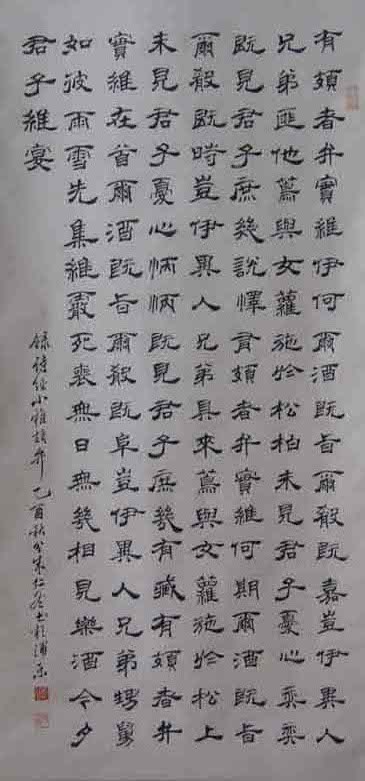 有頍者弁實維伊何爾酒既旨爾殽既嘉豈伊異人
兄弟匪他蔦與女蘿施於松柏未見君子憂心奕奕
既見君子庶幾說懌有頍者弁實維何期爾酒既旨
爾殽既時豈伊異人兄弟具來蔦與女蘿施於松上
未見君子憂心怲怲既見君子庶幾有藏有頍者弁
實維在首爾酒既旨爾殽既阜豈伊異人兄弟甥舅
如彼雨雪先集維霰死喪無日無幾相見樂酒今夕
君子維宴
錄詩經小雅頍弁乙酉秋分朱仁書於浦東